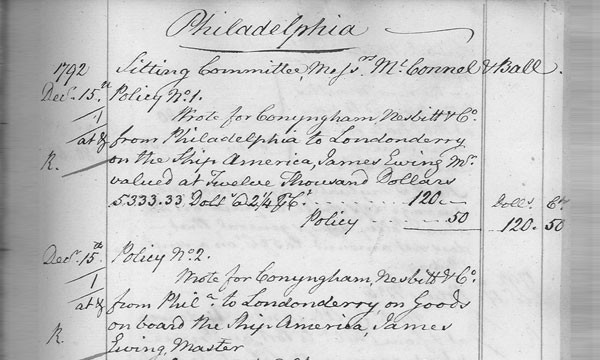 Philadelphia
1792 Sitting Committee, Messrs. McConnel & Ball.
Decr. 15th Policy No. 1.
1 Wrote for Conyngham, Nesbitt & Co.
at & from Philadelphia to Londonderry
R. on the Ship America, James Ewing Mr.
valued at Twelve Thousand Dollars
5333.33 Dolls. @ 2¼ ⅌ Ct. 120 Dolls. Cts.
Policy 50 120.50
Decr. 15th Policy No. 2.
1 Wrote for Conyngham, Nesbitt & Co.
at & from Phila. to Londonderry on Goods
on board the Ship America, James
R. Ewing, Master